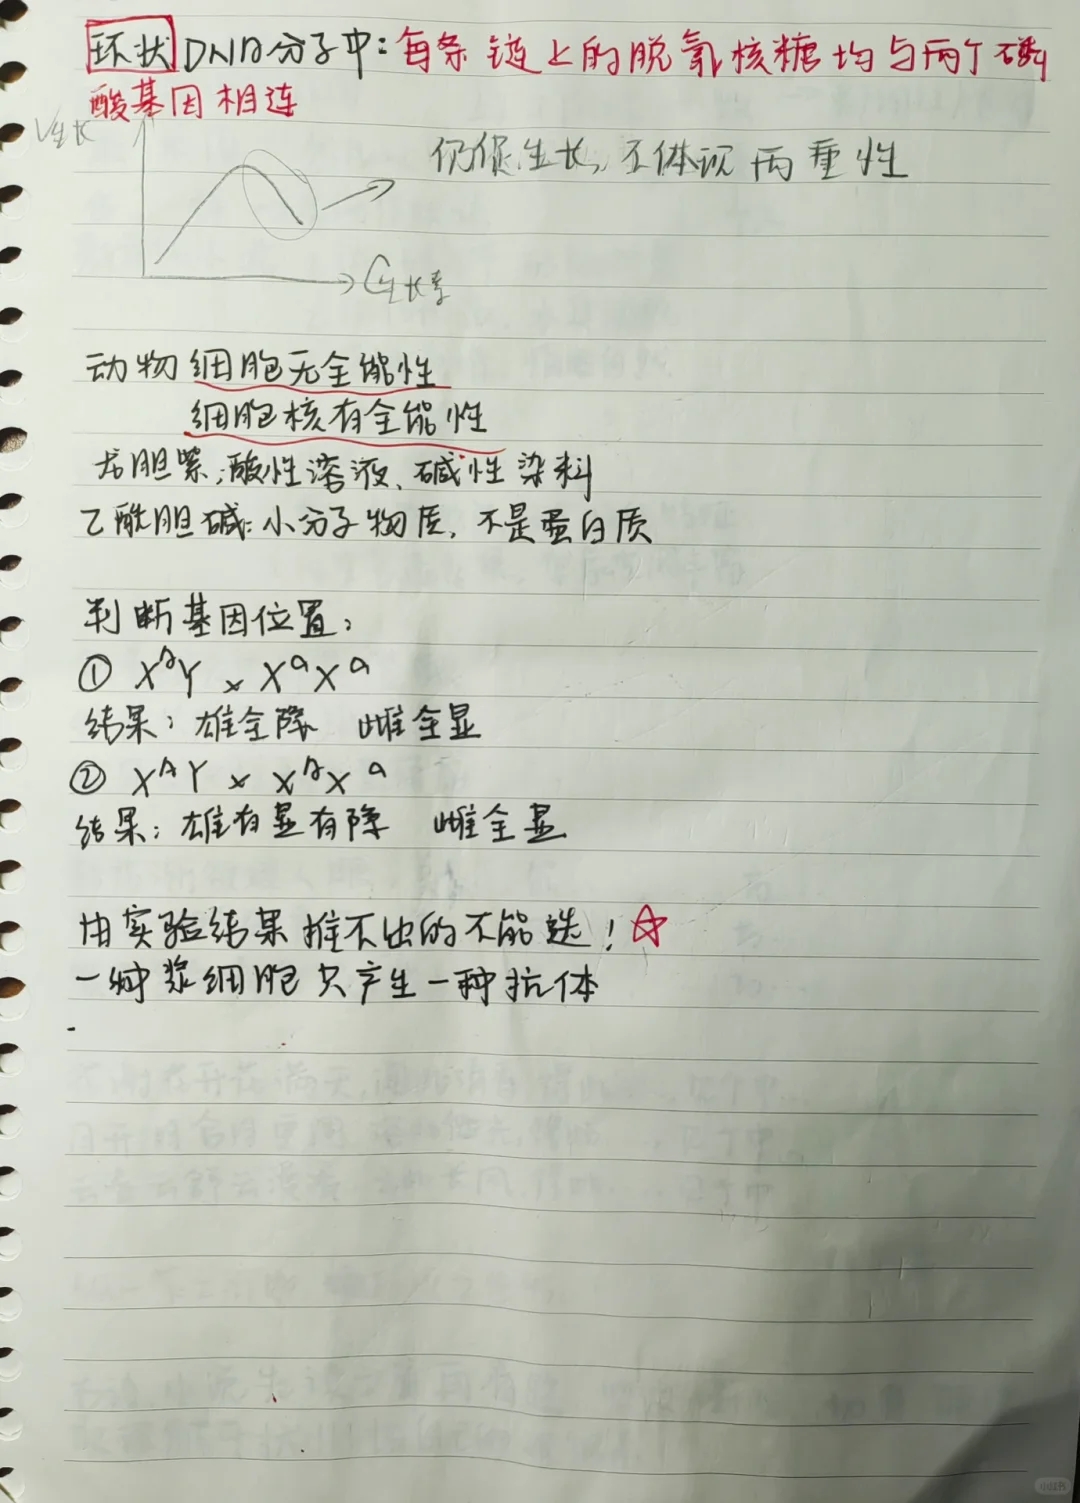 环状DNA分子中：每条链上的脱氧核糖均与两个磷
酸基因相连
V生长
仍促生长，不体现两重性
C生长素
动物细胞无全能性
细胞核有全能性
龙胆紫：酸性溶液、碱性染料
乙酰胆碱：小分子物质，不是蛋白质
判断基因位置：
① XᴬY × XᵃXᵃ
结果：雄全隐 雌全显
② XᴬY × XᴬXᵃ
结果：雄有显有隐 雌全显
由实验结果推不出的不能选！☆
一种浆细胞只产生一种抗体
小红书